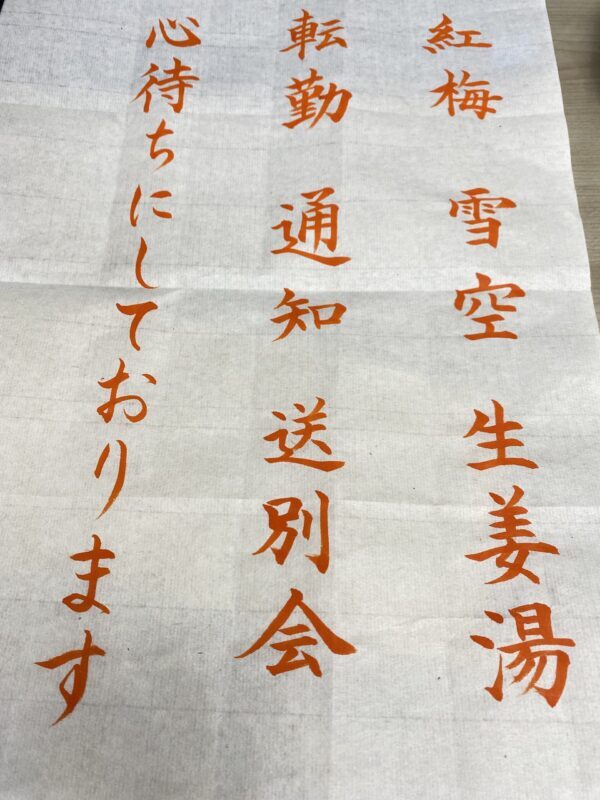 紅梅 雪空 生姜湯
転勤 通知 送別会
心待ちにしております